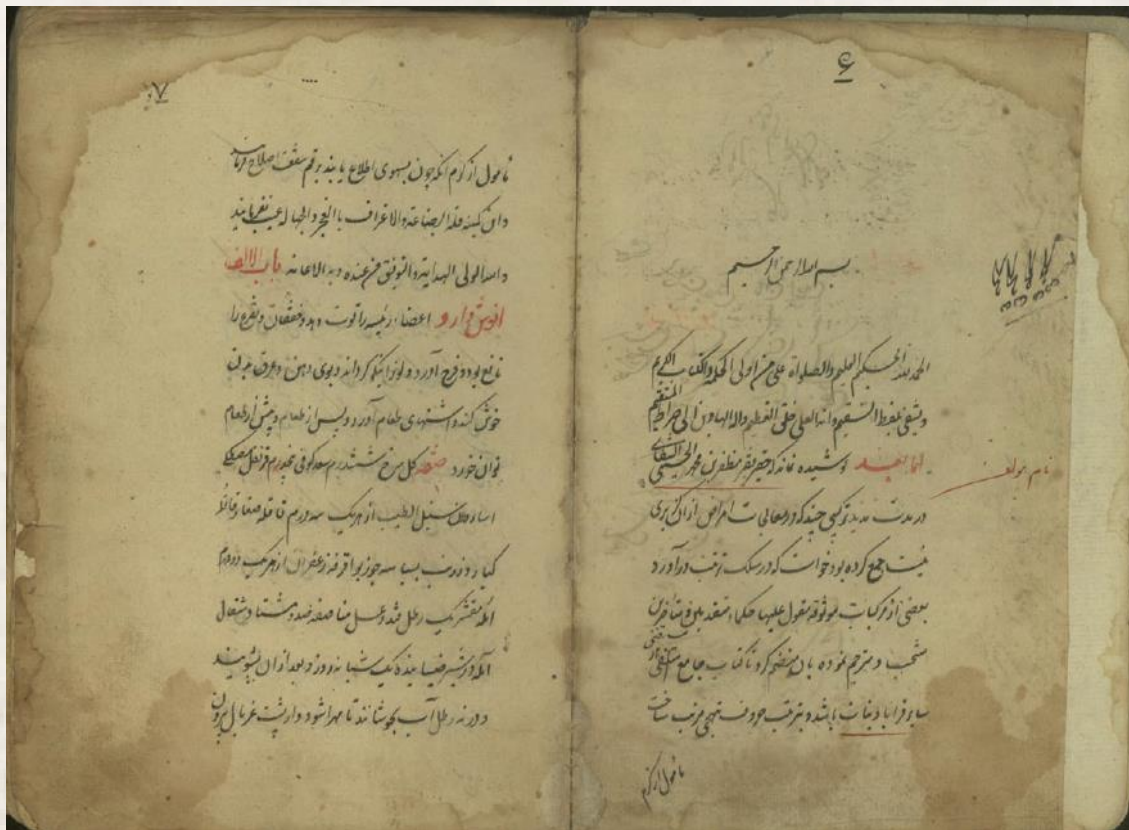 ۶
بسم الله الرحمن الرحیم
الحمد لله الحکیم العلیم والصلواة علی من اوتی الحکمة والکتاب الکریم
ویشفی بلفظ السقیم وانه لعلی خلق العظیم واله الهادین الی صراط المستقیم
اما بعد پوشیده نماند که حقیر فقیر مظفر بن محمد الحسینی الشفائی
نام مولف
در مدت مدید ترکیبی چند که در معالجات امراض از ان گزیری
نیست جمع کرده بود خواست که در سلک ترتیب در آورد
بعضی از مرکبات موثوقه معول علیها حکماء متقدمین و متاخرین
منتخب و مترجم نموده بان منضم کرد تا کتاب جامع مستغنی از
سایر قرابادینات باشد و بترتیب حروف تهجی مرتب ساخت
مامول از کرم
۷
مامول از کرم انکه چون بسهوی اطلاع یابند برقم شفقت اصلاح فرمایند
واین کمینه قلة البضاعة والاعتراف بالعجز والجهاله عیب نفرمایند
والله الولی الهدایة والتوفیق من عنده وبه الاعانه باب الالف
انوش دارو اعضاء رئیسه را قوت دهد و خفقان و نقرس را
نافع بود و فرح آورد و لونرا نیکو گرداند و بوی دهن و عرق بدن
خوش کند و اشتهای طعام آورد و پس از طعام و پیش از طعام
توان خورد صفه گل سرخ شش درم سعد کوفی پنج درم قرنفل مصطکی
اسارون سنبل الطیب از هر یک سه درم قاقله صغار قاقله
کبار زرنب بسباسه جوز بوا قرفه زعفران از هر یک دو درم
امله مقشر یک رطل قند و عسل مناصفه صد و هشتاد مثقال
امله در شیر خیسانیده یک شبانه روز و بعد از ان بشویند
و در نه رطل آب بجوشانند تا مهرا شود و از پشت غربال بیرون